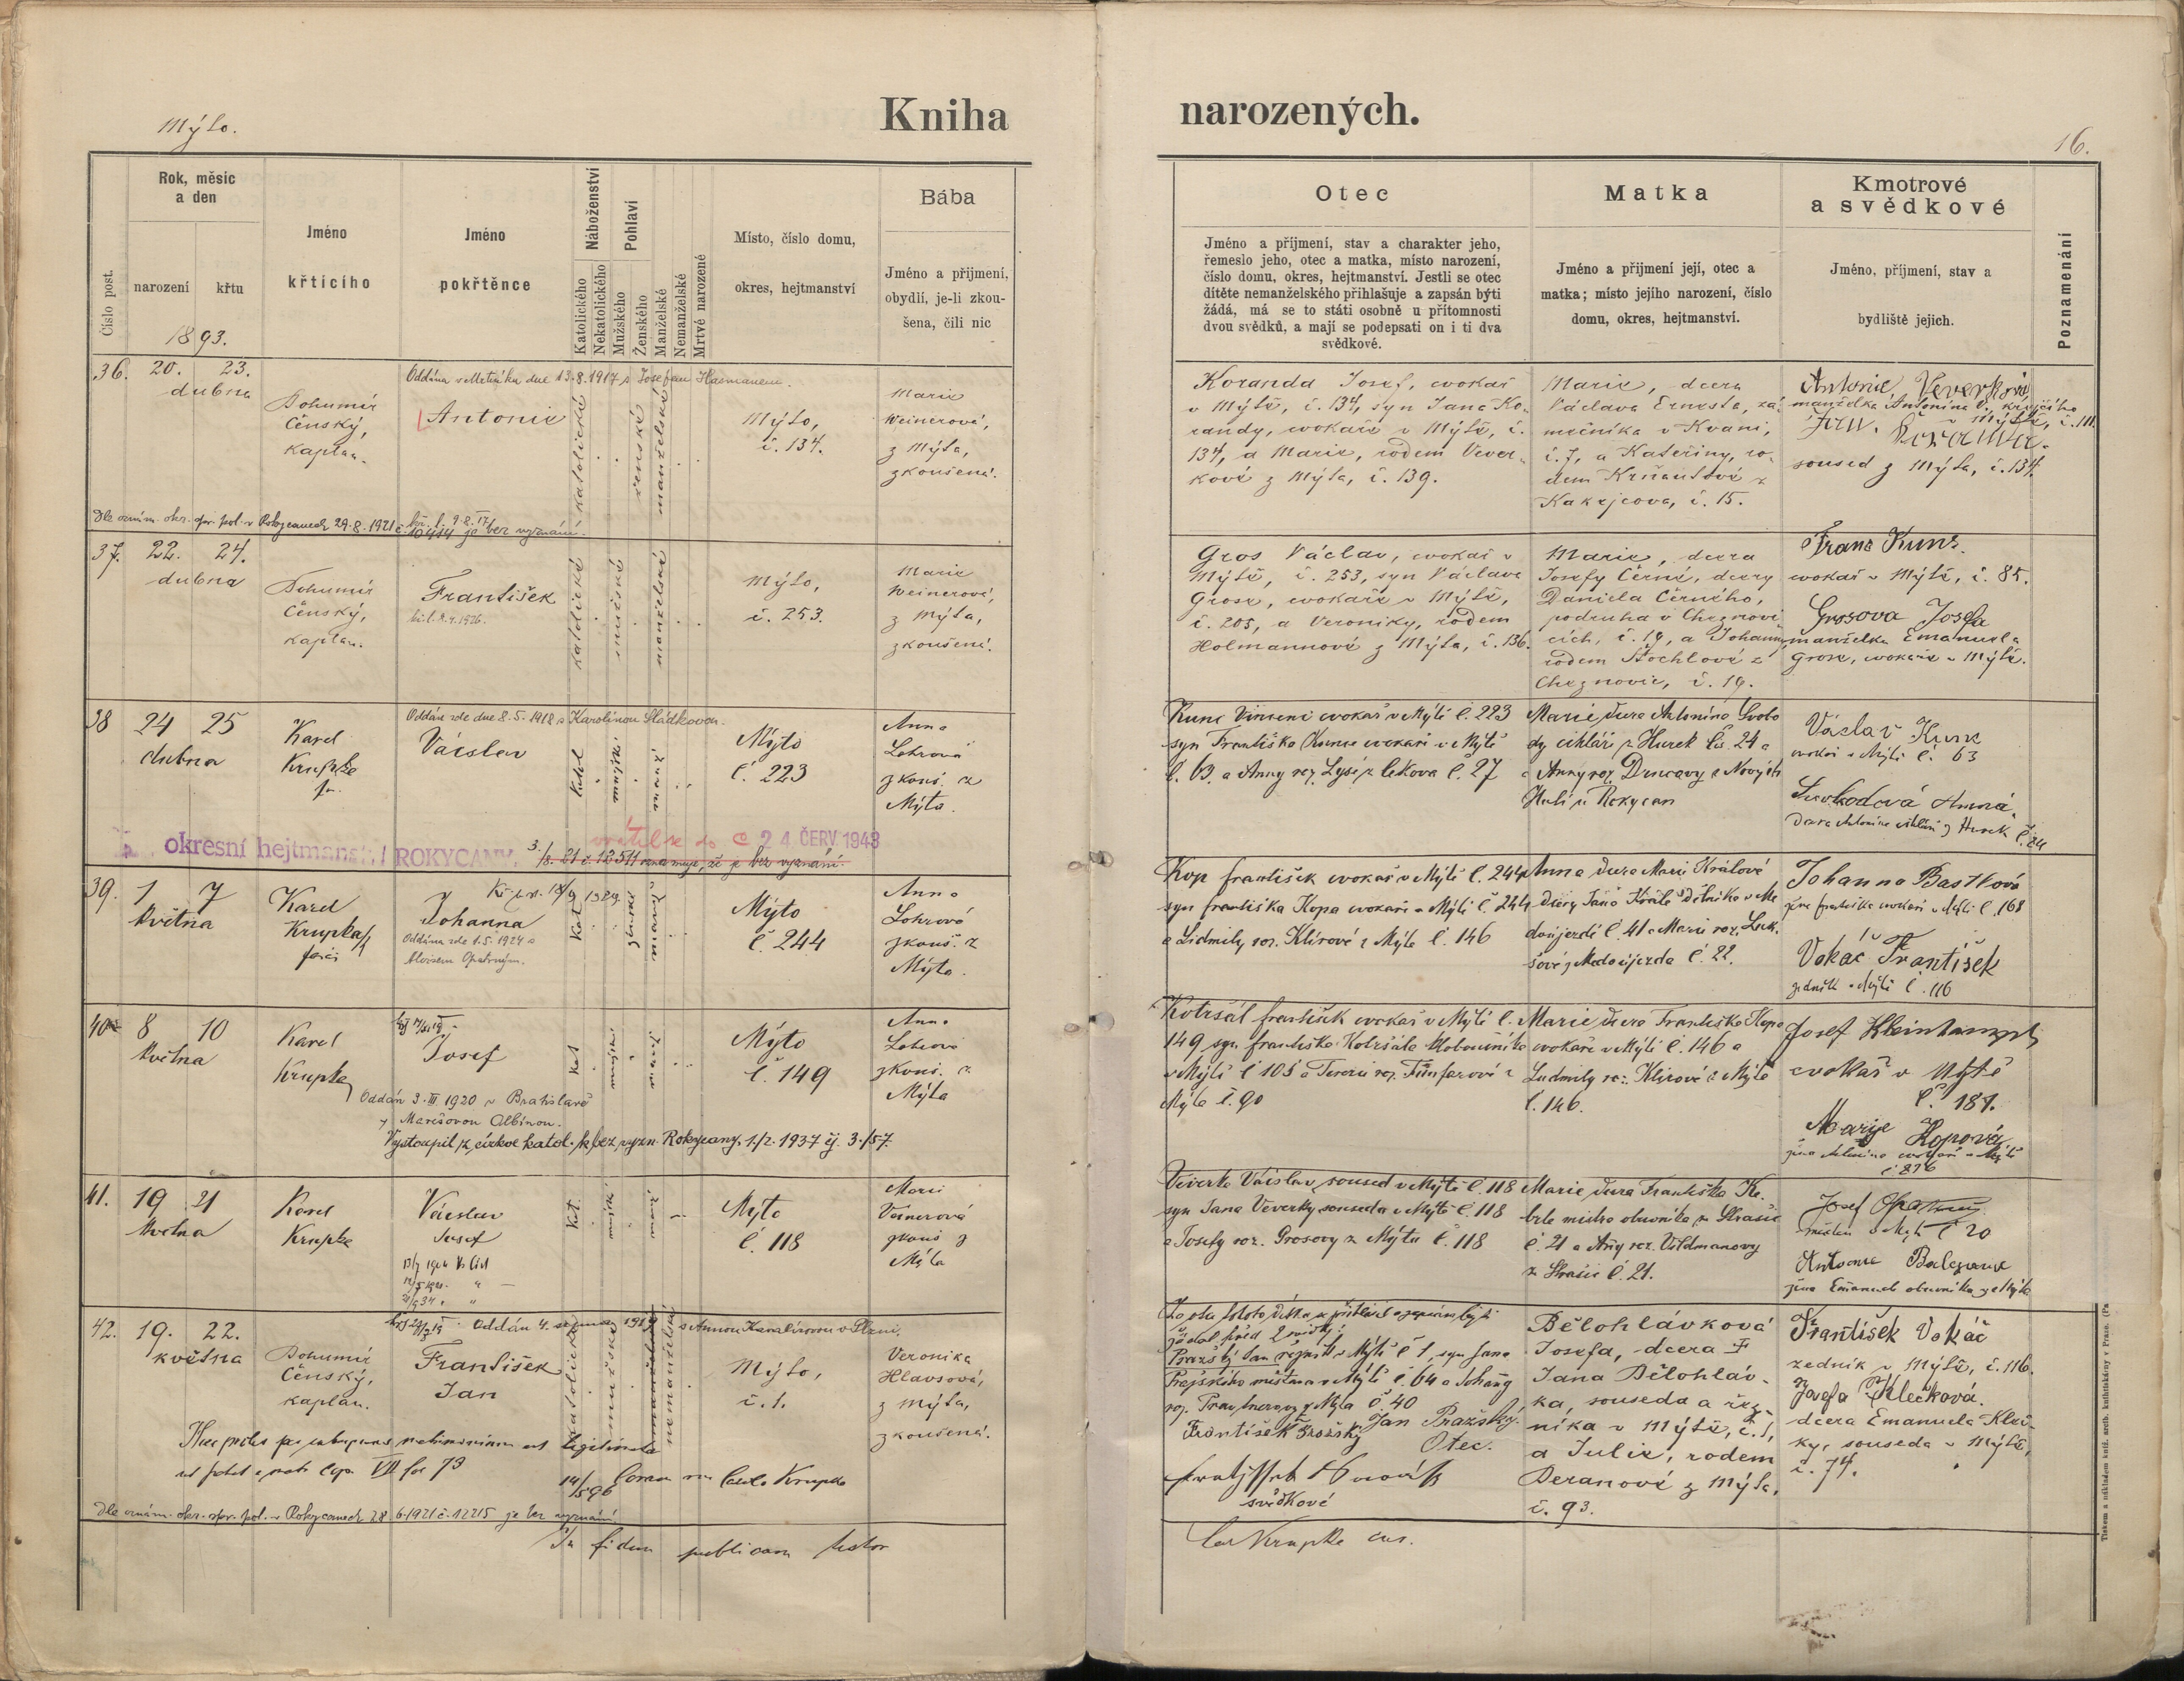 Mýto.
Kniha
narozených.
16.
Číslo post.
Rok, měsíc
a den
narození
křtu
1893.
Jméno
křtícího
Jméno
pokřtěnce
Náboženství
Katolického
Nekatolického
Pohlaví
Mužského
Ženského
Manželské
Nemanželské
Mrtvé narozené
Místo, číslo domu,
okres, hejtmanství
Bába
Jméno a přijmení,
obydlí, je-li zkou-
šena, čili nic
Otec
Jméno a příjmení, stav a charakter jeho,
řemeslo jeho, otec a matka, místo narození,
číslo domu, okres, hejtmanství. Jestli se otec
dítěte nemanželského přihlašuje a zapsán býti
žádá, má se to státi osobně u přítomnosti
dvou svědků, a mají se podepsati on i ti dva
svědkové.
Matka
Jméno a příjmení její, otec a
matka; místo jejího narození, číslo
domu, okres, hejtmanství.
Kmotrové
a svědkové
Jméno, příjmení, stav a
bydliště jejich.
Poznamenání
36. 20. 23.
dubna
Bohumír
Čenský,
kaplan.
Oddána v dne 13.8.1917 s Josefem Hasmanem.
Antonie
katolické
ženské
manželské
Mýto,
č. 134.
Marie
Weinerové,
z Mýta,
zkoušená.
Dle oznám. okr. spr. pol. v Rokycanech 29.8.1921 č. 10414 je bez vyznání.
Koranda Josef, cvokař
v Mýtě, č. 134, syn Jana Ko-
randy, cvokaře v Mýtě, č.
134, a Marie, rodem Vever-
kové z Mýta, č. 139.
Marie, dcera
Václava Ernesta, zá-
mečníka v Kvani,
č. 7, a Kateřiny, ro-
dem Krňanlové z
Kakejcova, č. 15.
Antonie Veverková
manželka Antonína V., krejčího
v Mýtě, č. 111.
Jan.
soused z Mýta, č. 134.
37. 22. 24.
dubna
Bohumír
Čenský,
kaplan.
František
katolické
mužské
manželské
Mýto,
č. 253.
Marie
Weinerové,
z Mýta,
zkoušená.
Gros Václav, cvokař v
Mýtě, č. 253, syn Václava
Grose, cvokaře v Mýtě,
č. 205, a Veroniky, rodem
Holmannové z Mýta, č. 136.
Marie, dcera
Josefy Černé, dcery
Daniela Černého,
podruha v Cheznovi-
cích, č. 19, a Johanny
rodem Stochlové z
Cheznovic, č. 19.
Franc Kunc.
cvokař v Mýtě, č. 85.
Grosova Josefa
manželka Emanuela
Grose, cvokaře v Mýtě.
38 24 25
dubna
Karel
Krupka
Oddán zde dne 8.5.1918 s Karolinou Sládkovou.
Václav
katol
mužské
manž
Mýto
č. 223
Anna
Lohrová
zkouš. z
Mýta.
okresní hejtmanství ROKYCANY
24 ČERV 1948
3./8. 21 č. 12511 oznamuje, že je bez vyznání.
Kunc Vincenc cvokař v Mýtě č. 223
syn Františka Kunce cvokaře v Mýtě
č. 63. a Anny roz. Lysé z č. 27
Marie dcera Antonína Svobo
dy cihláře z Hurek čís. 24 a
Anny roz. z Nových
Hutí u Rokycan
Václav Kunc
cvokař v Mýtě č. 63
Svobodová Anna
Dcera Antonína cihláře z Hurek č. 24
39. 1 7
května
Karel
Krupka
farář
Johanna
Oddána zde 1.5.1924 s
Aloisem Opatrným.
Kat
ženské
manž
Mýto
č. 244
Anna
Lohrová
zkouš. z
Mýta.
Kop František cvokař v Mýtě č. 244
syn Františka Kopa cvokaře v Mýtě č. 244
a Ludmily roz. Klírové z Mýta č. 146
Anna dcera Marie Králové
dcery Jana Krále dělníka v Me
doújezdě č. 41 a Marie roz. Luk-
šové z Medoújezda č. 22.
Johanna Bastková
žena Františka cvokaře v Mýtě č. 168
Vokáč František
zedník v Mýtě č. 116
40. 8 10
května
Karel
Krupka
Josef
Oddán 3.III.1920 v Bratislavě
s Marešovou Albínou.
Vystoupil z církve katol. k bez vyzn. Rokycany, 1./2. 1937 čj. 3./57.
Kat
mužské
manž.
Mýto
č. 149
Anna
Lohrová
zkouš. z
Mýta
Kotršál František cvokař v Mýtě č.
149 syn Františka Kotršála kloboučníka
v Mýtě č 105 a Terezie roz. Fünferové z
Mýta č. 90
Marie dcera Františka Kopa
cvokaře v Mýtě č. 146 a
Ludmily roz. Klírové z Mýta
č. 146.
Josef Kleinhampl
cvokař v Mýtě
č. 187.
Marije Kopová
žena Antonína cvokaře v Mýtě
41. 19 21
května
Karel
Krupka
Václav
Josef
Kat.
mužské
manž
Mýto
č. 118
Marie
Veinerová
zkouš z
Mýta
Veverka Václav, soused v Mýtě č. 118
syn Jana Veverky souseda v Mýtě č. 118
a Josefy roz. Grosovy z Mýta č. 118
Marie dcera Františka Ke-
brle mistra obuvníka ze Strašic
č. 21 a Anny roz. Vildmanovy
z Strašic č. 21.
Josef Opatrný
v Mýtě č 20
Antonie
žena Emanuela obuvníka z Mýta
42. 19. 22.
května
Bohumír
Čenský,
kaplan.
Oddán 4. srpna 1919 s Annou v Plzni.
František
Jan
katolické
mužské
manželské
nemanželské
Mýto,
č. 1.
Veronika
Hlavsová,
z Mýta,
zkoušená.
Haec proles per subsequens matrimonium est legitimata
ut patet e matr. Cop. VII fol 73
14/5 96 Coram me Carolo Krupka
Dle oznám. okr. spr. pol. v Rokycanech 28.6.1921 č. 12215 je bez vyznání.
In fidem publicam testor
Za otce tohoto dítka se přihlásil a zapsán býti
žádal před 2 svědky
Pražský Jan řezník v Mýtě č 1, syn Jana
Pražského v Mýtě č. 64 a Johanny
roz. z Mýta č. 40
František Pražský Jan Pražský.
Otec.
svědkové
Car Krupka
Bělohlávková
Josefa, dcera
Jana Bělohláv-
ka, souseda a řez-
níka v Mýtě, č. 1,
a Julie, rodem
Beranové z Mýta,
č. 93.
František Vokáč
zedník v Mýtě, č. 116.
Josefa Klečková.
dcera Emanuela Kleč-
ky, souseda v Mýtě,
č. 74.